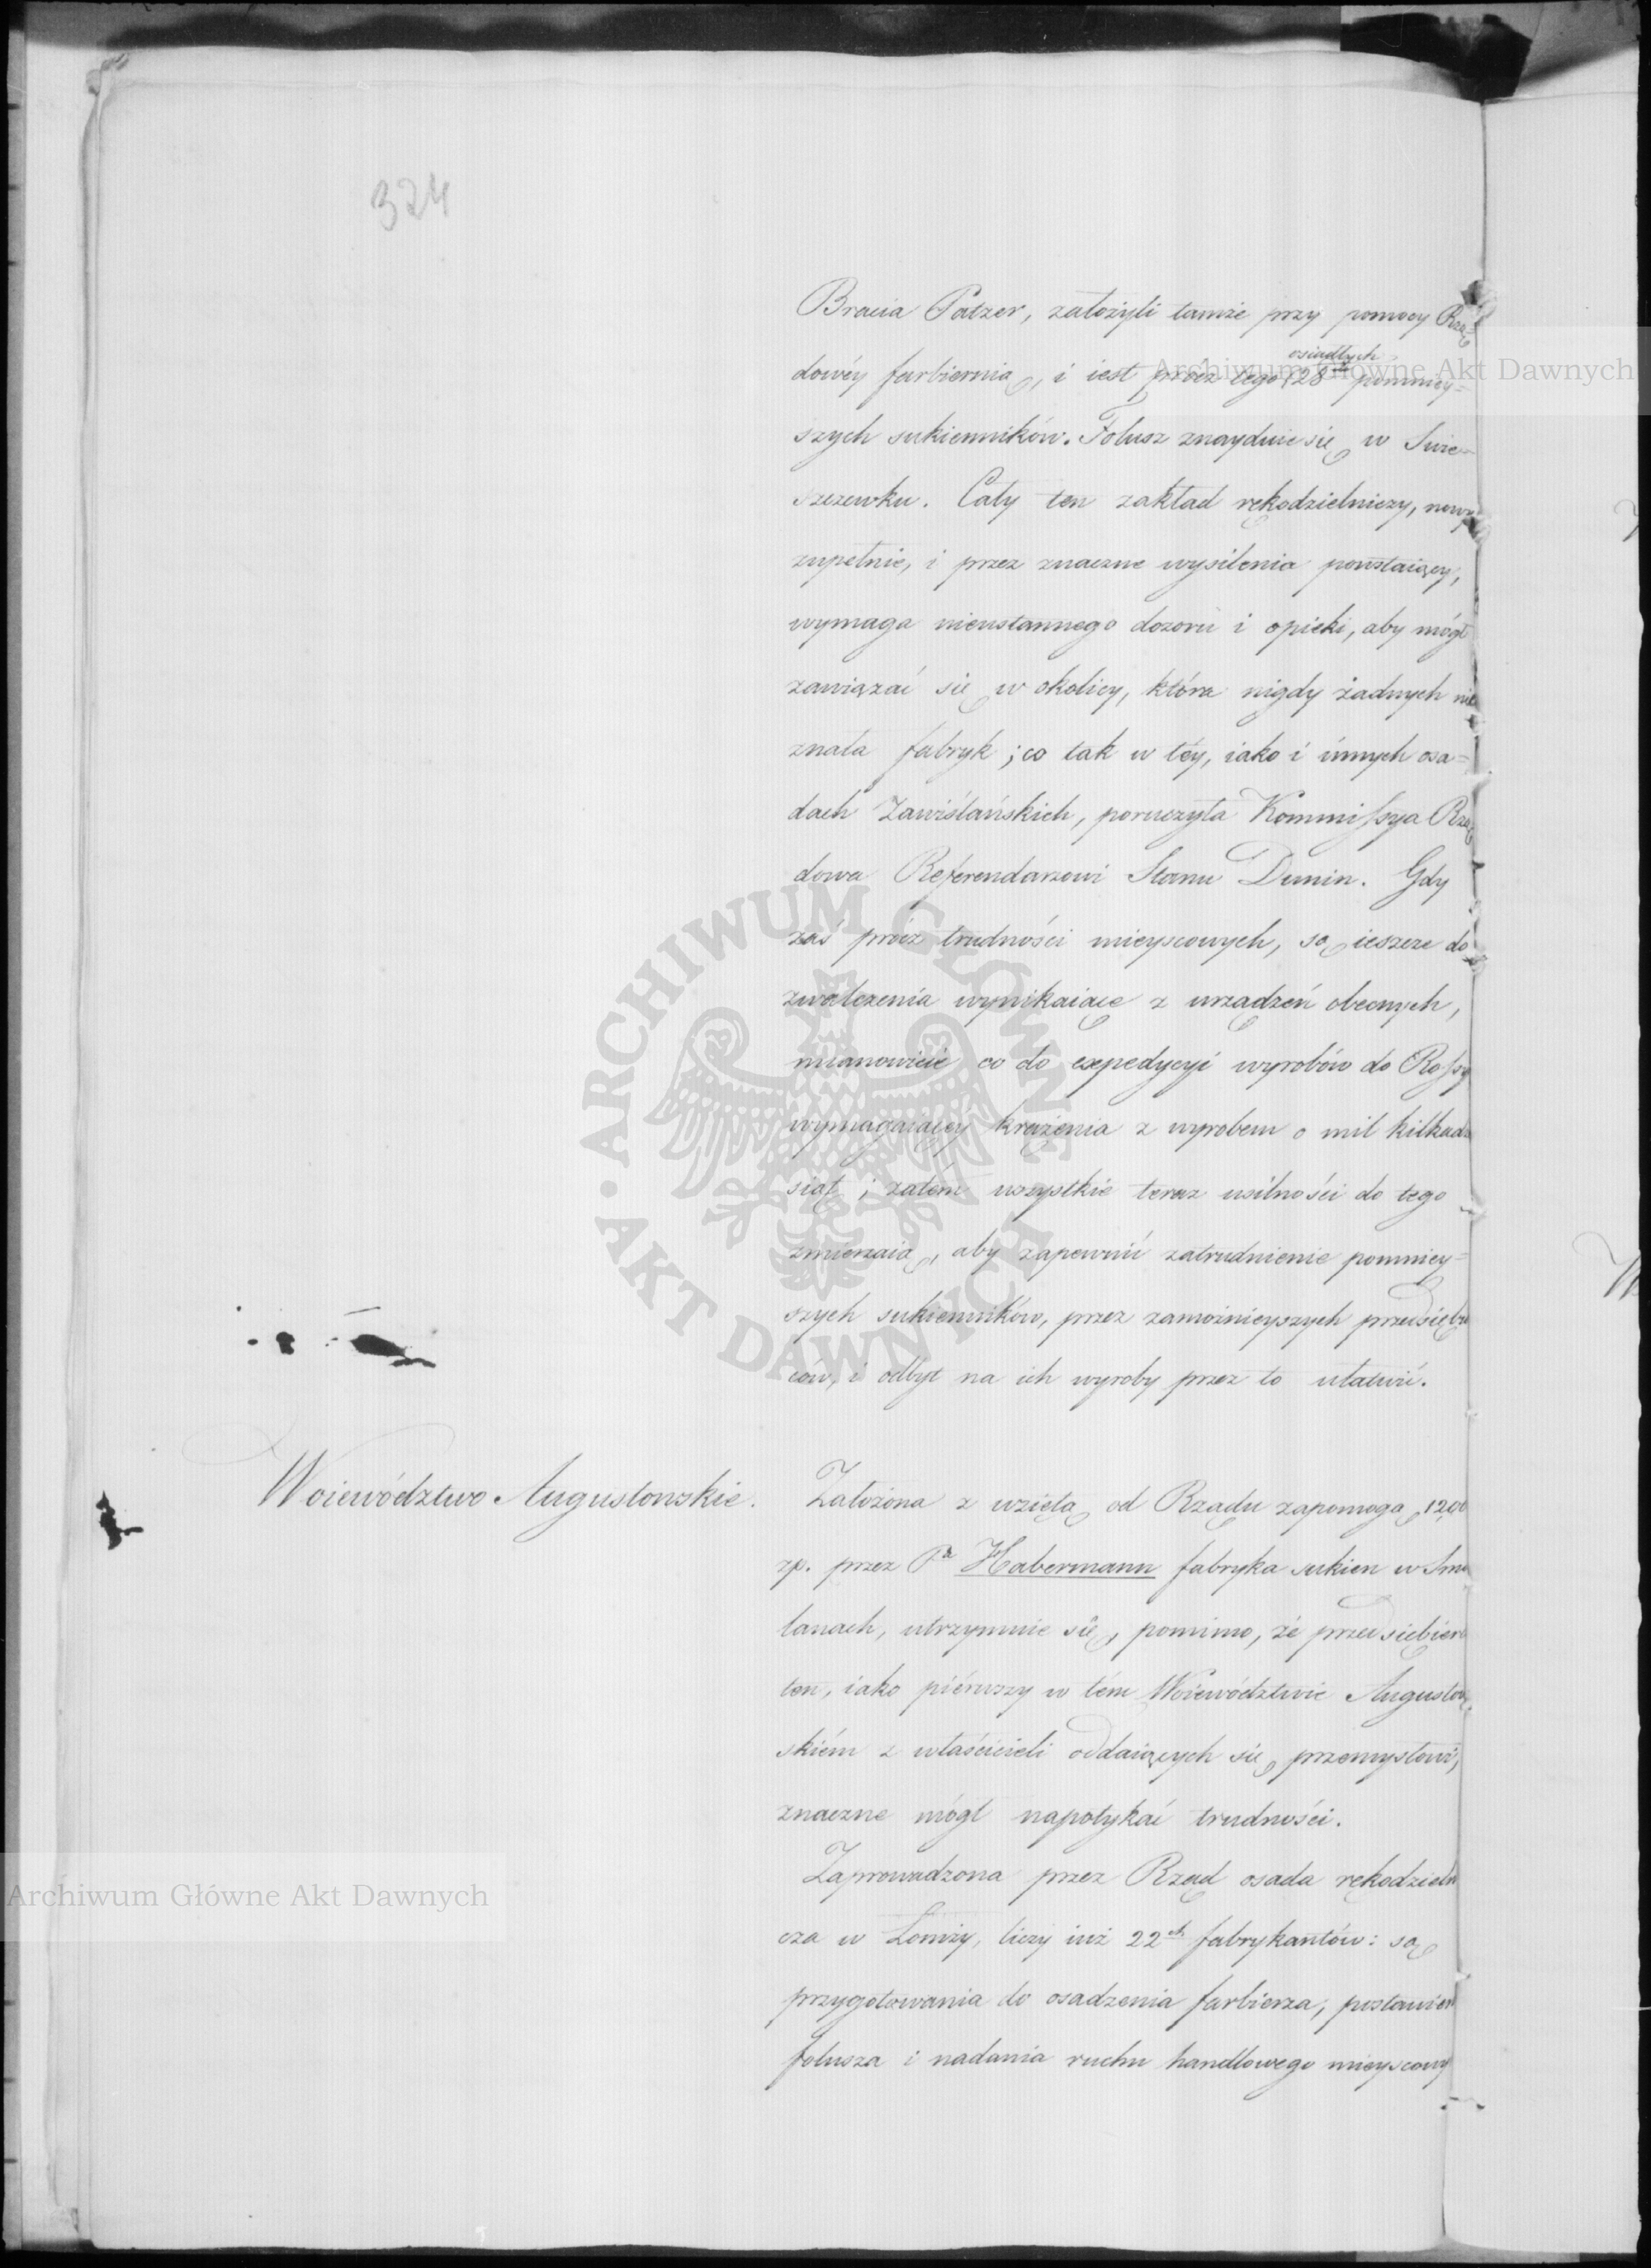 324
Bracia Patzer, założyli tamże przy pomocy Rzą=
osiadłych
dowéy farbiernią, i iest prócz tego 28 pomniey=
szych sukienników. Folusz znayduie się w Swie=
szczewku. Cały ten zakład rękodzielniczy, nowy
zupełnie, i przez znaczne wysilenia powstaiący,
wymaga nieustannego dozoru i opieki, aby mógł
zawiązać się w okolicy, która nigdy żadnych nie
znała fabryk; co tak w téy, iako i innych osa=
dach Zawiślańskich, poruczyła Kommissya Rzą
dowa Referendarzowi Stanu Dunin. Gdy
zaś prócz trudności mieyscowych, są ieszcze do
zwalczenia wynikaiące z urządzeń obecnych,
mianowicie co do expedycyi wyrobów do Rossy
wymagaiącey krążenia z wyrobem o mil kilkadz
siąt; zatém wszystkie teraz usilności do tego
zmierzaią, aby zapewnić zatrudnienie pomniey=
szych sukienników, przez zamożnieyszych przedsiębi
ców, i odbyt na ich wyroby przez to ułatwić.
Woiewództwo Augustowskie.
Założona z wziętą od Rządu zapomogą
zp. przez Pa Habermann fabryka sukien w
lanach, utrzymuie się, pomimo, że przedsiębier
ten, iako piérwszy w tém Woiewództwie Augustow
skiém z właścicieli oddaiących się przemysłowi,
znaczne mógł napotykać trudności.
Zaprowadzona przez Rząd osada rękodzieln
cza w Łomży, liczy iuż 22ch fabrykantów: są
przygotowania do osadzenia farbierza, postawien
folusza i nadania ruchu handlowego mieyscowy
Archiwum Główne Akt Dawnych
Archiwum Główne Akt Dawnych
ARCHIWUM GŁÓWNE
AKT DAWNYCH